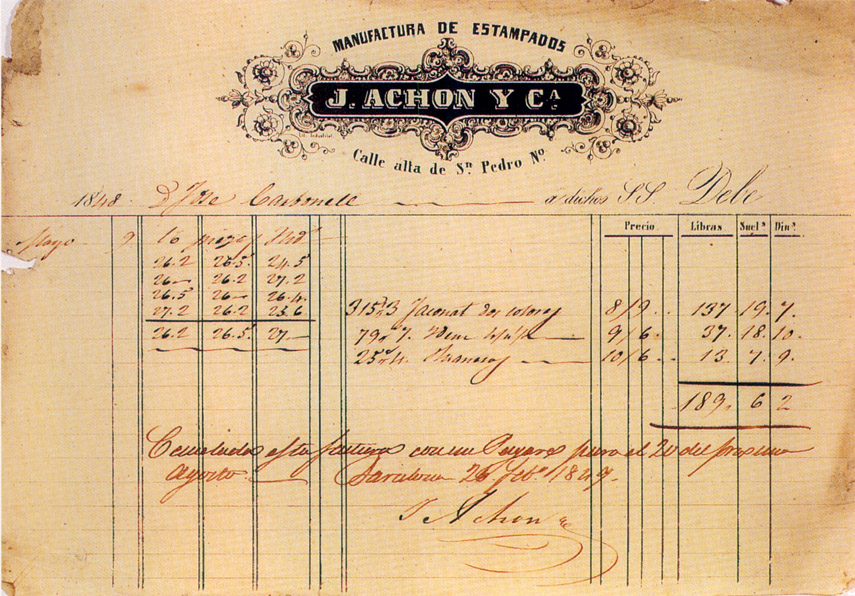 MANUFACTURA DE ESTAMPADOS
J. ACHON Y Cª
Lit. Industrial
Calle alta de Sn. Pedro Nº
1848. D. Carbonell a dichos SS. Debe
Precio Libras Suelˢ Dinˢ
Mayo 9. 16 piezas
26.2 26.5 24.5
26 26.2 27.2
26.5 26 26.4
27.2 26.2 23.6 315 3 Jaconat dos colores 8/9 137. 19. 7.
26.2 26.5 27 79 7. Idem 9/6 37. 18. 10.
25 4. 10/6 13 7. 9.
189. 6 2
Cancelada esta factura con un Pagaré para el 20 del proximo
Agosto. Barcelona 26 febº 1849.
J Achon